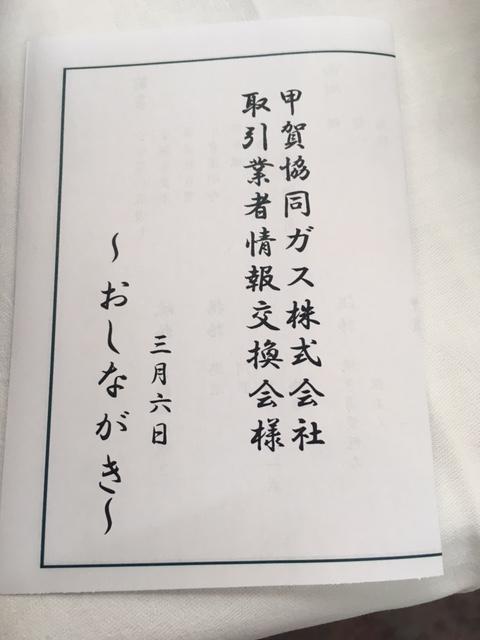 甲賀協同ガス株式会社
取引業者情報交換会様
三月六日
～おしながき～